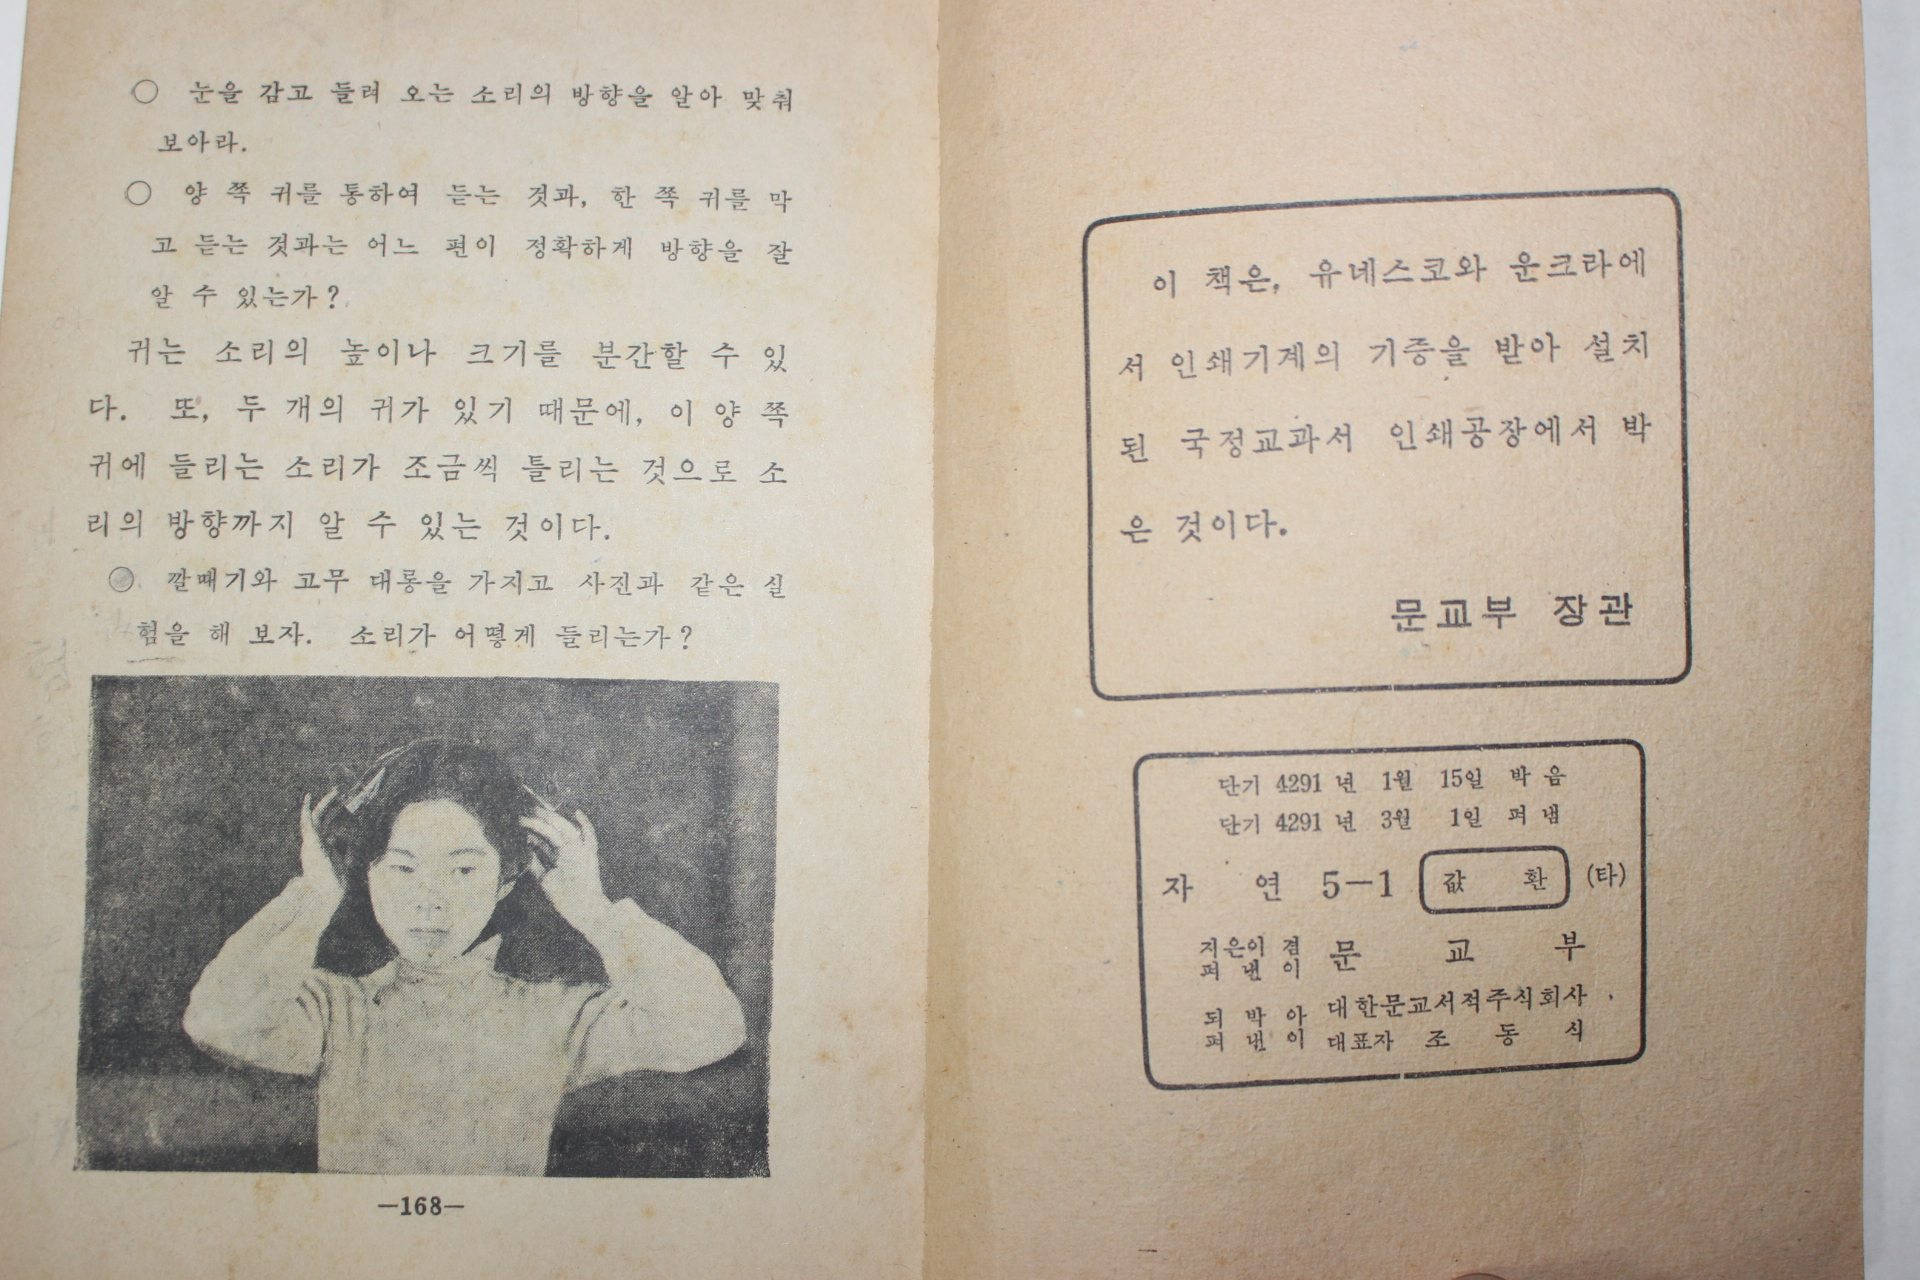 ○ 눈을 감고 들려 오는 소리의 방향을 알아 맞춰
보아라.
○ 양 쪽 귀를 통하여 듣는 것과, 한 쪽 귀를 막
고 듣는 것과는 어느 편이 정확하게 방향을 잘
알 수 있는가?
귀는 소리의 높이나 크기를 분간할 수 있
다. 또, 두 개의 귀가 있기 때문에, 이 양 쪽
귀에 들리는 소리가 조금씩 틀리는 것으로 소
리의 방향까지 알 수 있는 것이다.
○ 깔때기와 고무 대롱을 가지고 사진과 같은 실
험을 해 보자. 소리가 어떻게 들리는가?
—168—
이 책은, 유네스코와 운크라에
서 인쇄기계의 기증을 받아 설치
된 국정교과서 인쇄공장에서 박
은 것이다.
문교부 장관
단기 4291 년 1월 15일 박음
단기 4291 년 3월 1일 펴냄
자 연 5—1 값 환 (타)
지은이 겸
펴 낸 이 문 교 부
되 박 아
펴 낸 이
대한문교서적주식회사
대표자 조 동 식